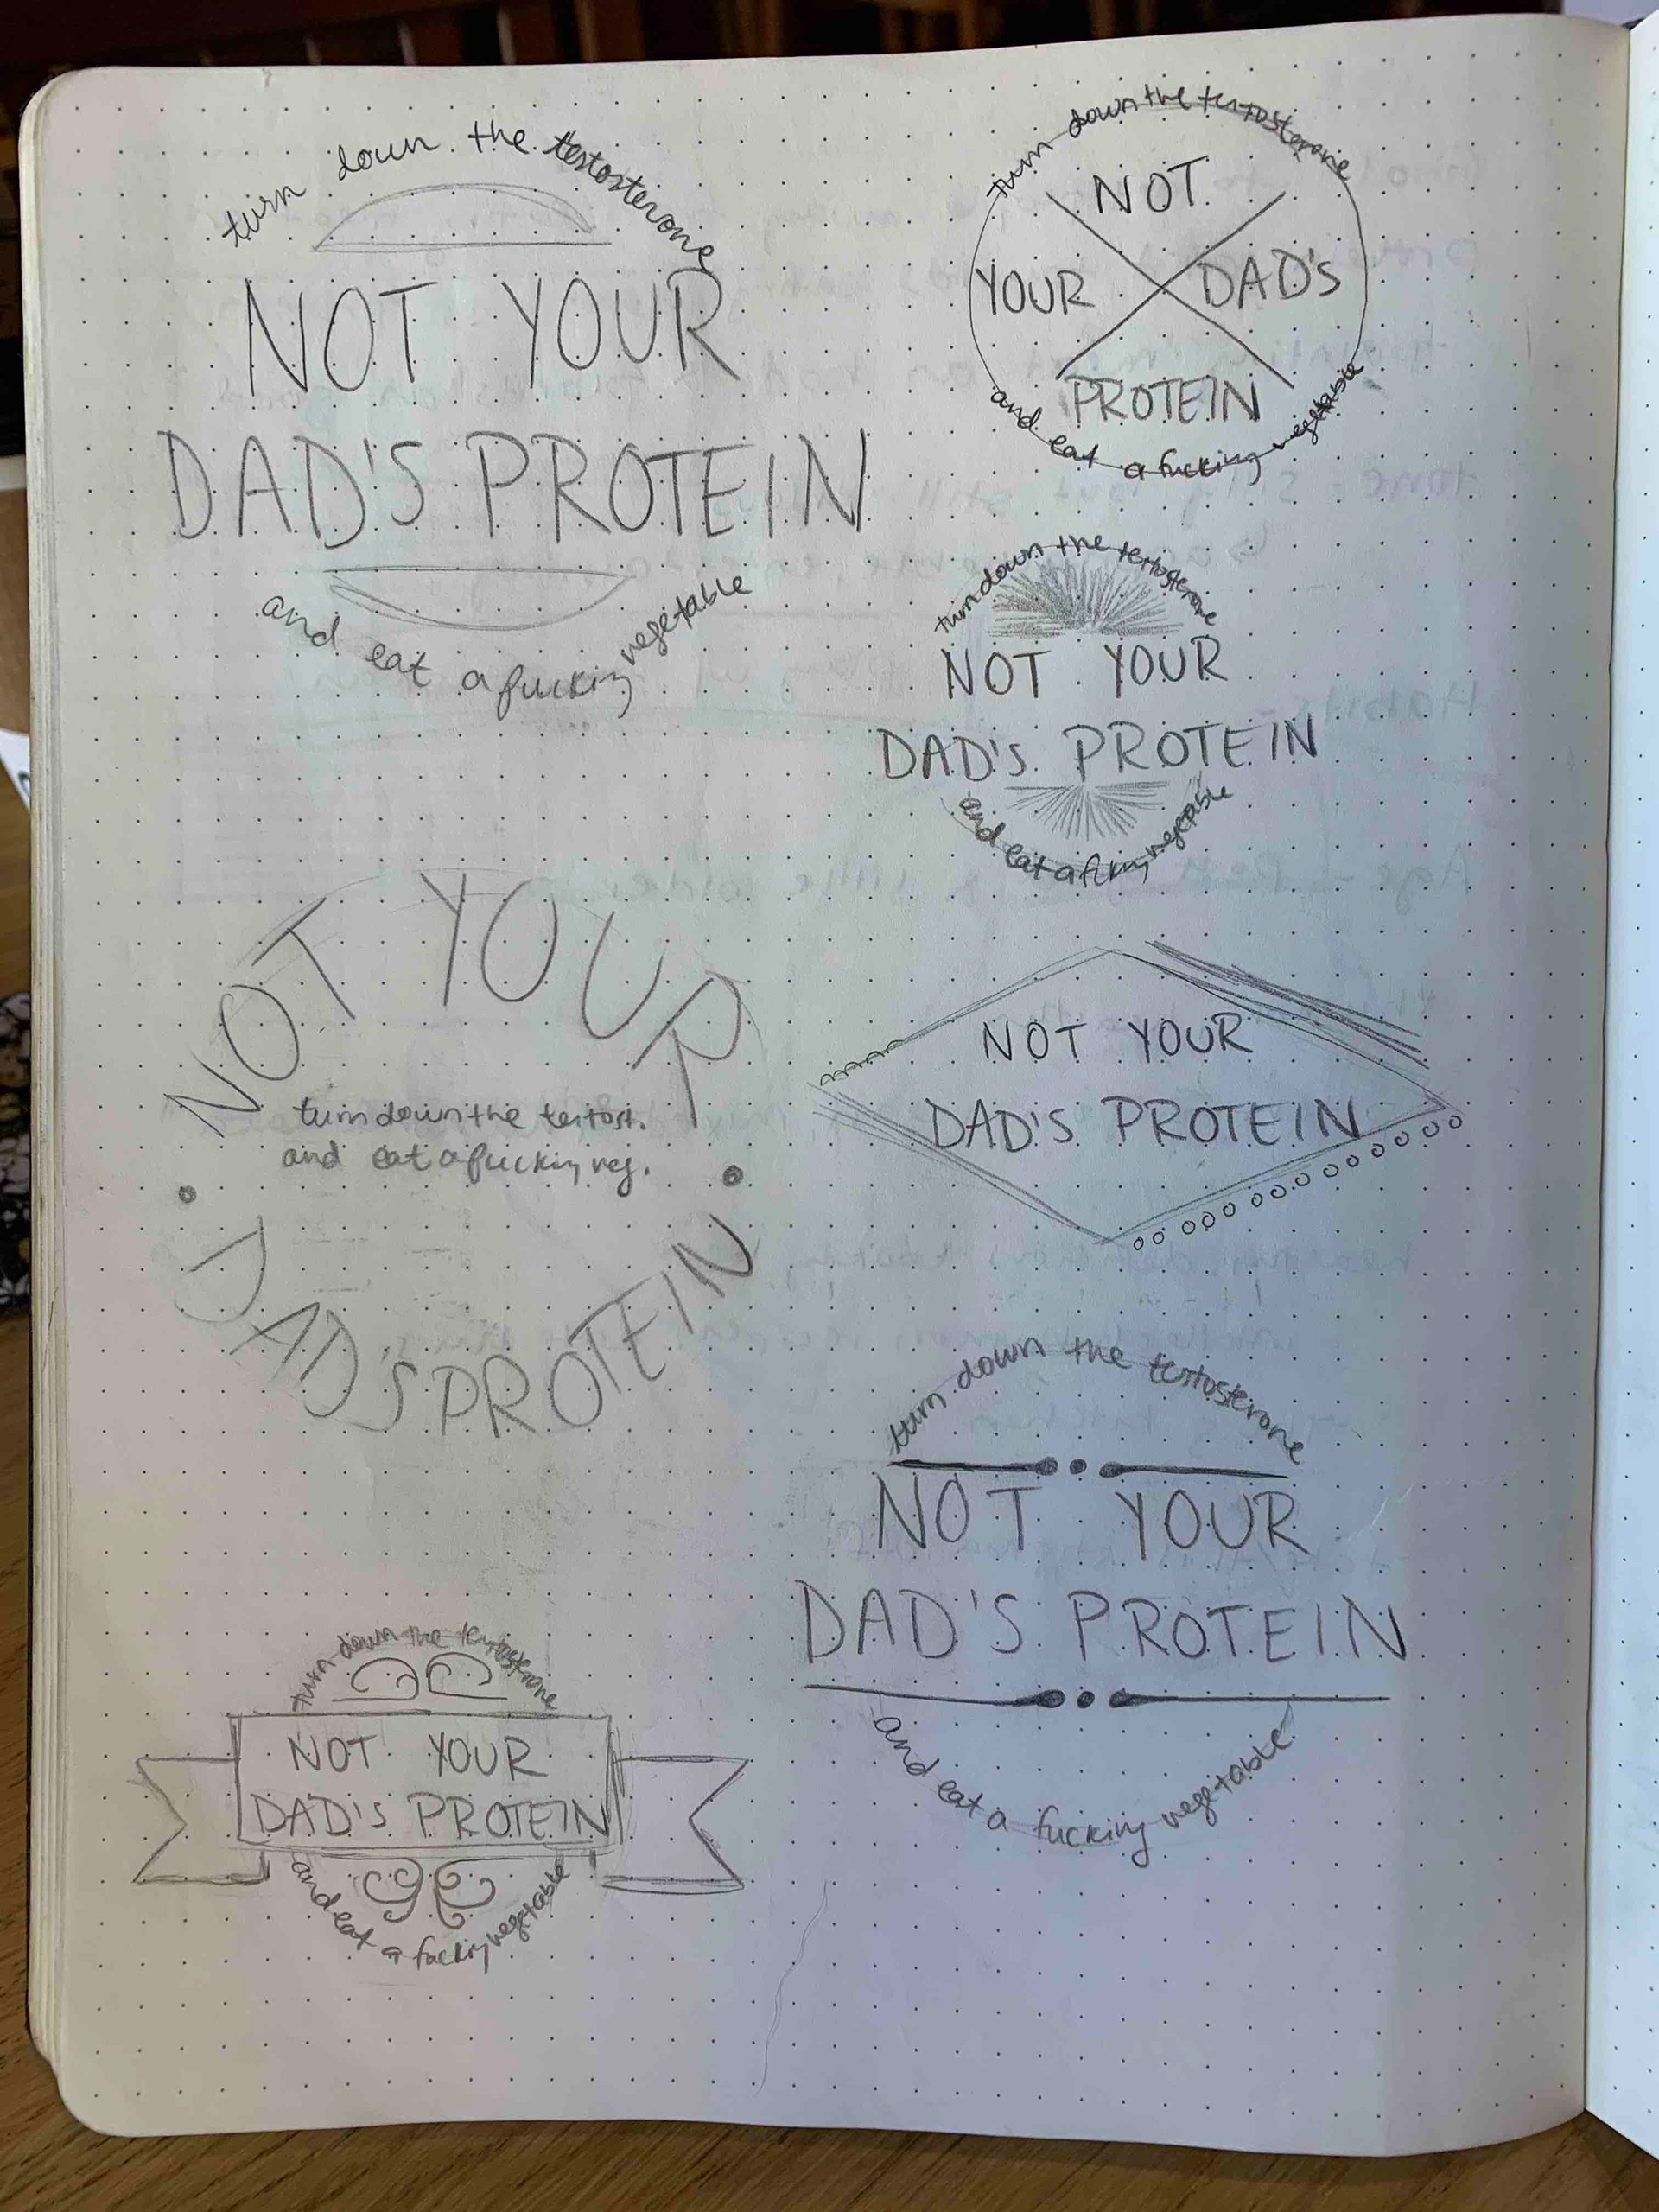 turn down the testosterone
NOT YOUR
DAD'S PROTEIN
and eat a fucking vegetable
turn down the testosterone
NOT
YOUR DAD'S
PROTEIN
and eat a fucking vegetable
turn down the testosterone
NOT YOUR
DAD'S PROTEIN
and eat a fucking vegetable
NOT YOUR
turn down the testost.
and eat a fucking veg.
DAD'S PROTEIN
NOT YOUR
DAD'S PROTEIN
turn down the testosterone
NOT YOUR
DAD'S PROTEIN
and eat a fucking vegetable
turn down the testosterone
NOT YOUR
DAD'S PROTEIN
and eat a fucking vegetable